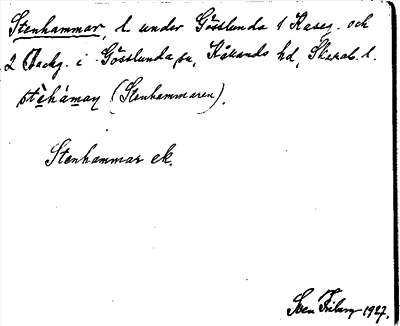 Stenhammar, l. under Gösslunda 1 Kaseg. och
2 Backg. i Gösslunda sn, Kållands hd, Skarab. l.
stèhámaṇ (Stenhammaren).
Stenhammar ek.
Sven Friberg 1927.